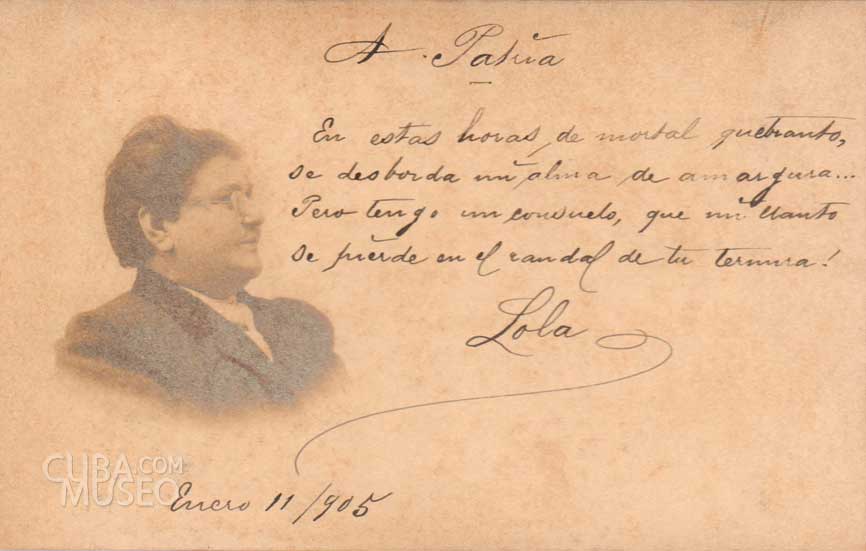 A. Patria
En estas horas de mortal quebranto,
se desborda mi alma de amargura...
Pero tengo un consuelo, que mi llanto
se pierde en el raudal de tu ternura!
Lola
CUBA.COM
MUSEO
Enero 11/905